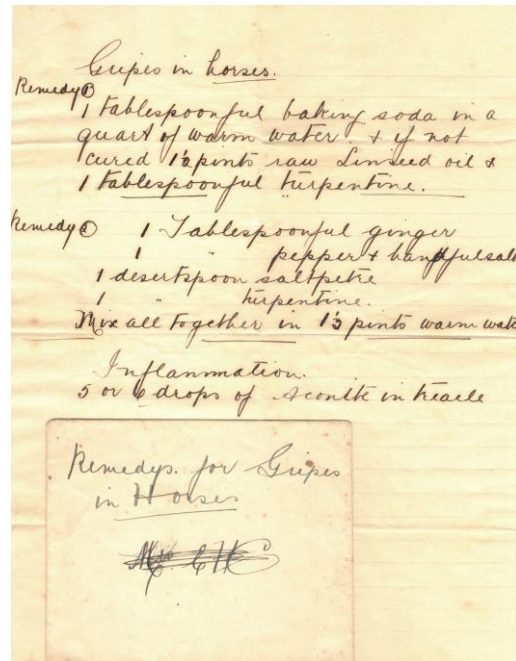 Gripes in horses.
Remedy ①
1 tablespoonful baking soda in a
quart of warm water. & if not
cured 1½ pints raw Linseed oil &
1 tablespoonful turpentine.
Remedy ② 1 Tablespoonful ginger
1 " pepper & handful salt
1 desertspoon saltpetre
1 " turpentine.
Mix all together in 1½ pints warm wate
Inflammation.
5 or 6 drops of Aconite in treacle
Remedys. for Gripes
in Horses